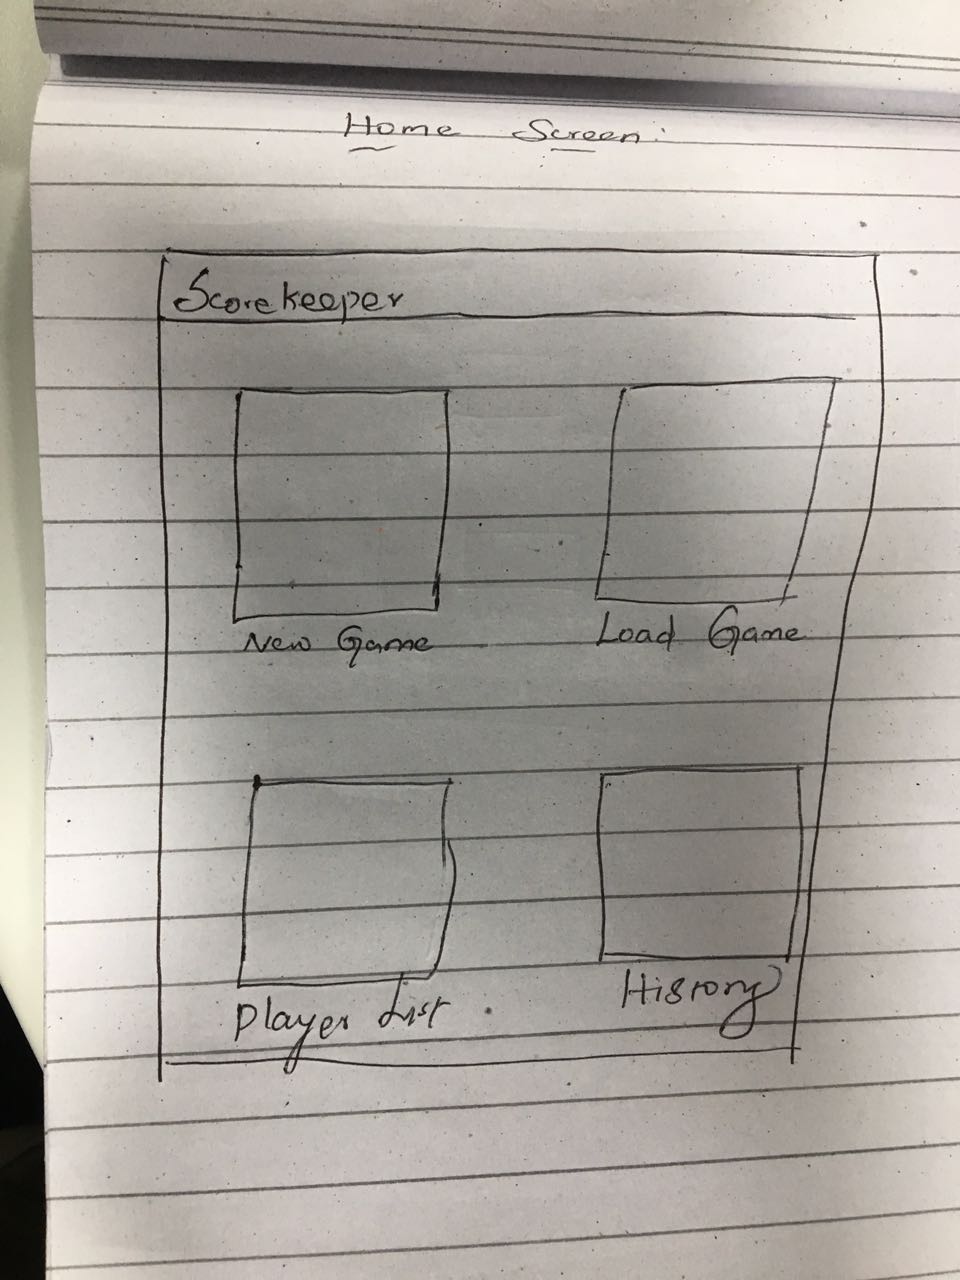 Home Screen:
Scorekeeper
New Game
Load Game
Player List
History